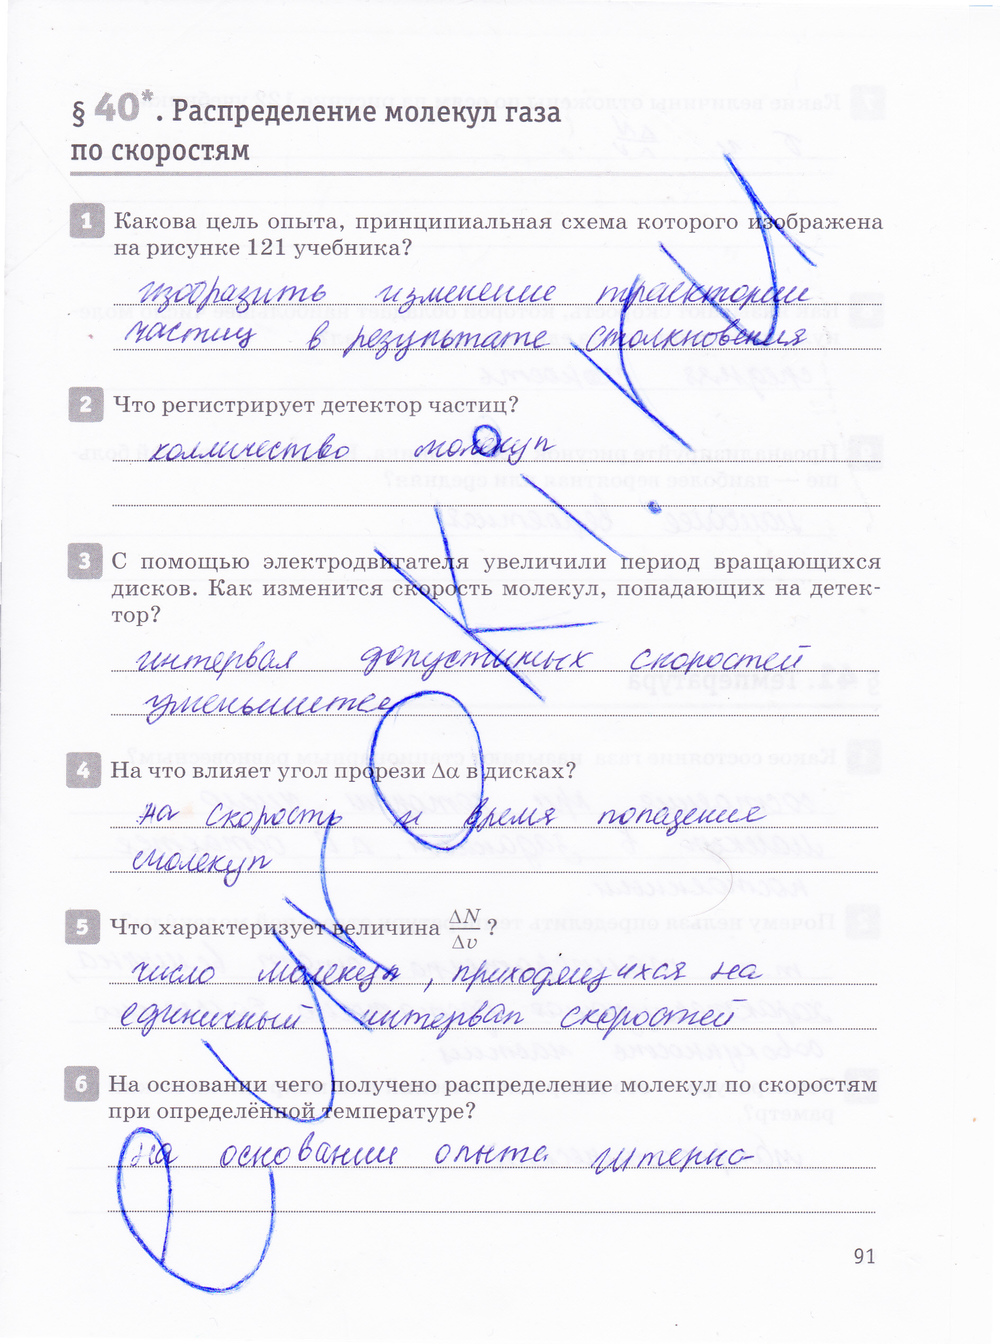 § 40*. Распределение молекул газа
по скоростям
1 Какова цель опыта, принципиальная схема которого изображена
на рисунке 121 учебника?
изобразить изменение траектории
частиц в результате столкновения
2 Что регистрирует детектор частиц?
колличество молекул
3 С помощью электродвигателя увеличили период вращающихся
дисков. Как изменится скорость молекул, попадающих на детек-
тор?
интервал допустимых скоростей
уменьшится
4 На что влияет угол прорези Δα в дисках?
на скорость и время попадения
молекул
5 Что характеризует величина ΔN/Δv ?
число молекул, приходящихся на
единичный интервал скоростей
6 На основании чего получено распределение молекул по скоростям
при определённой температуре?
на основании опыта штерна
91